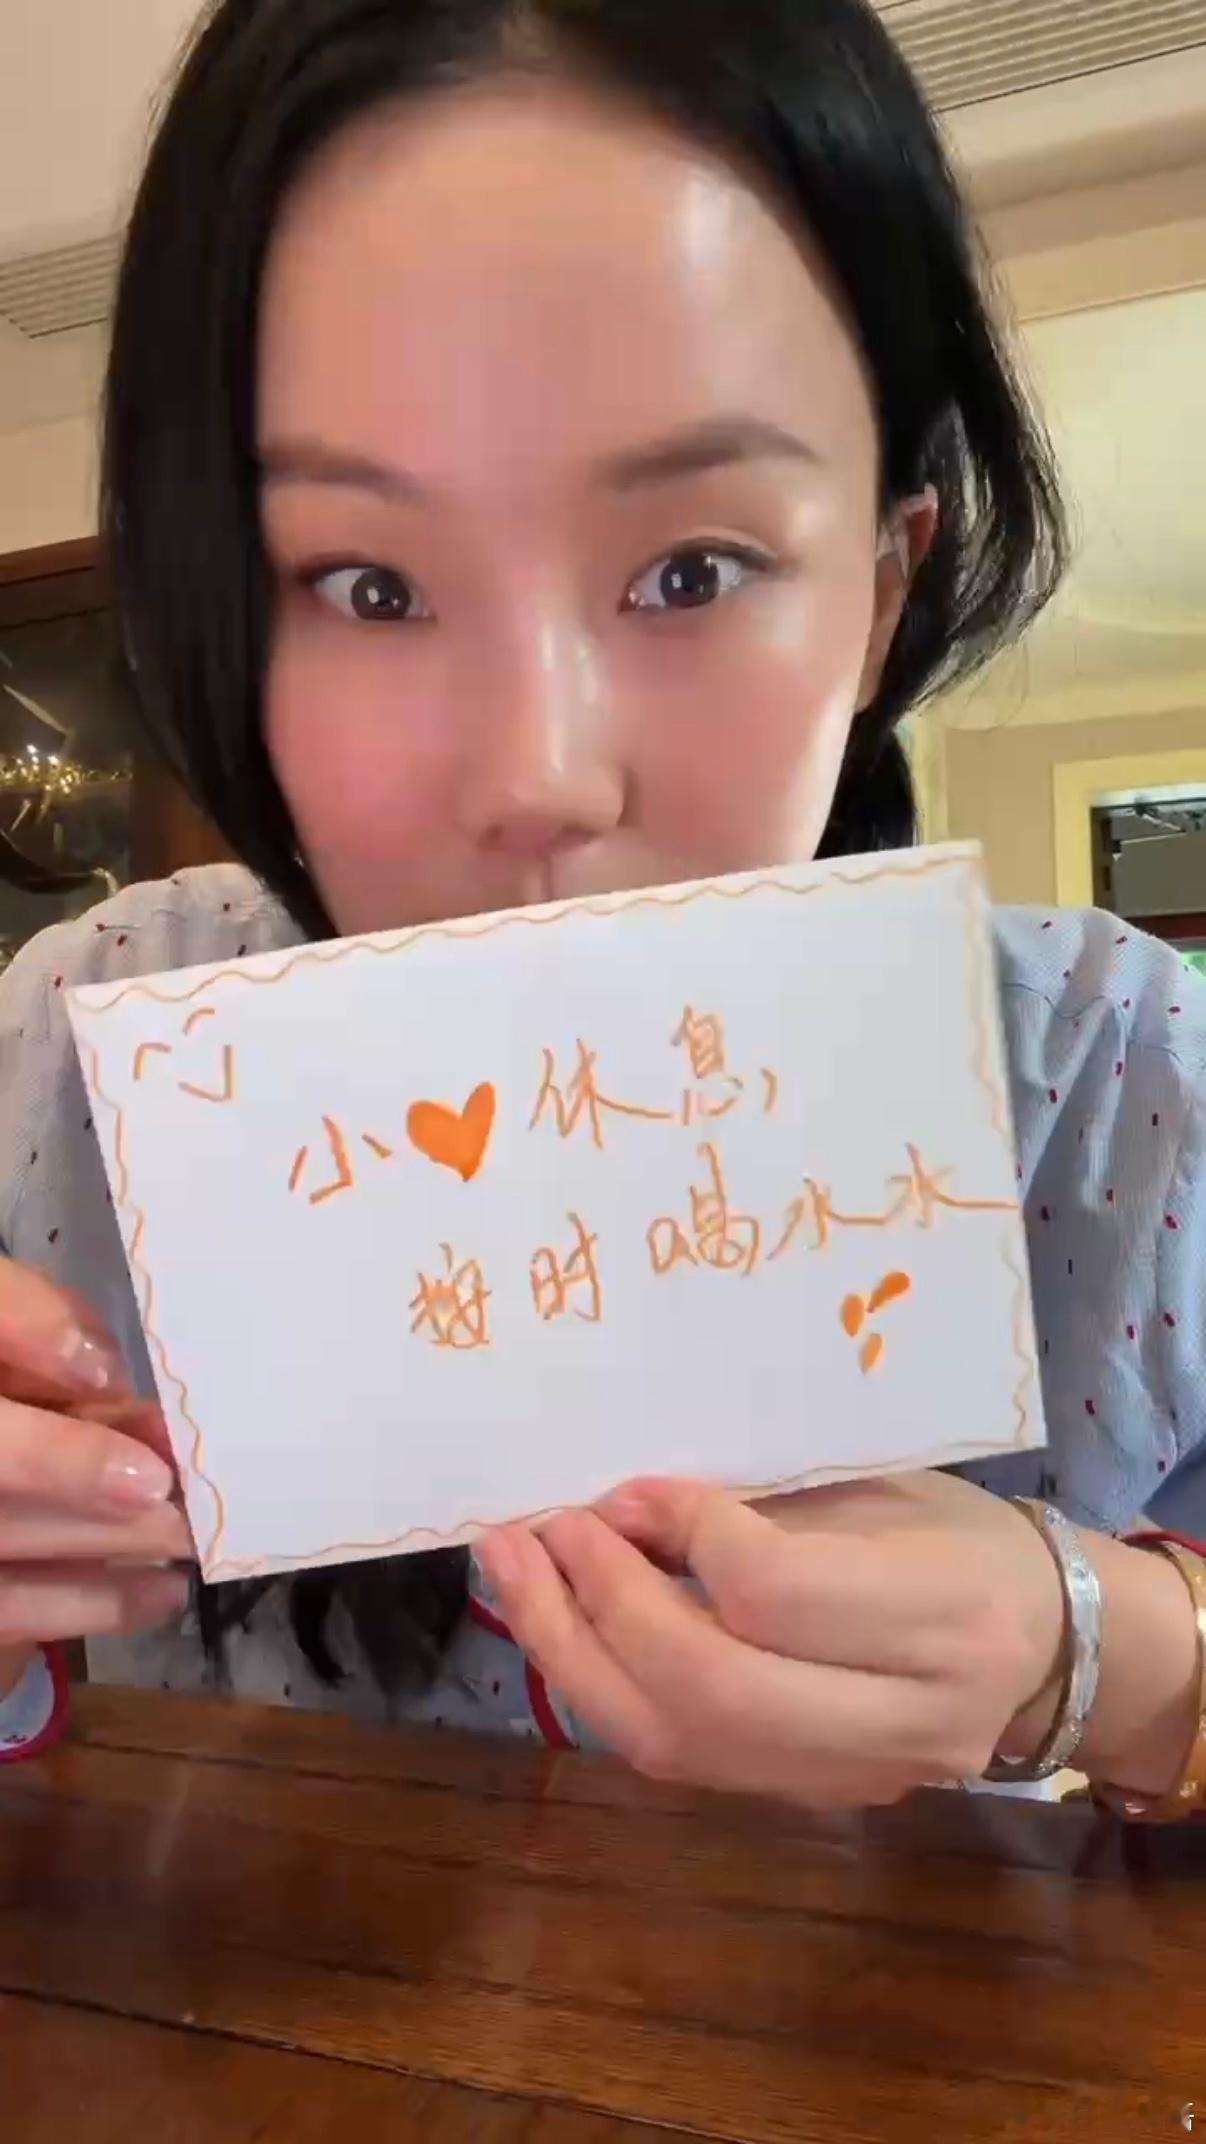 小🧡休息，
按时喝水水